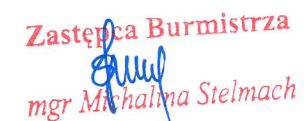 Zastępca Burmistrza
mgr Michalina Stelmach